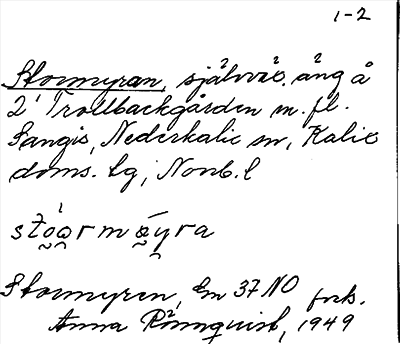 1-2
Stormyran, självväx. äng å
2 Trollbackgården m. fl.
Sangis, Nederkalix sn, Kalix
doms. tg, Norrb. l
Stormyren, Em 37 NO fork.
Anna Rönnquist, 1949